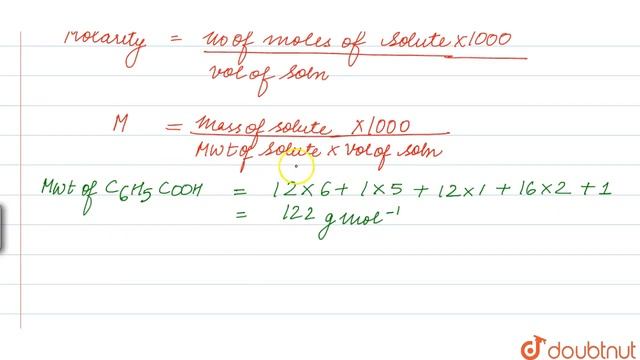 Molarity = no of moles of solute x 1000
vol of soln
M = Mass of solute x 1000
Mwt of solute x vol of soln
Mwt of C6H5COOH = 12 x 6 + 1 x 5 + 12 x 1 + 16 x 2 + 1
= 122 g mol-1
doubtnut